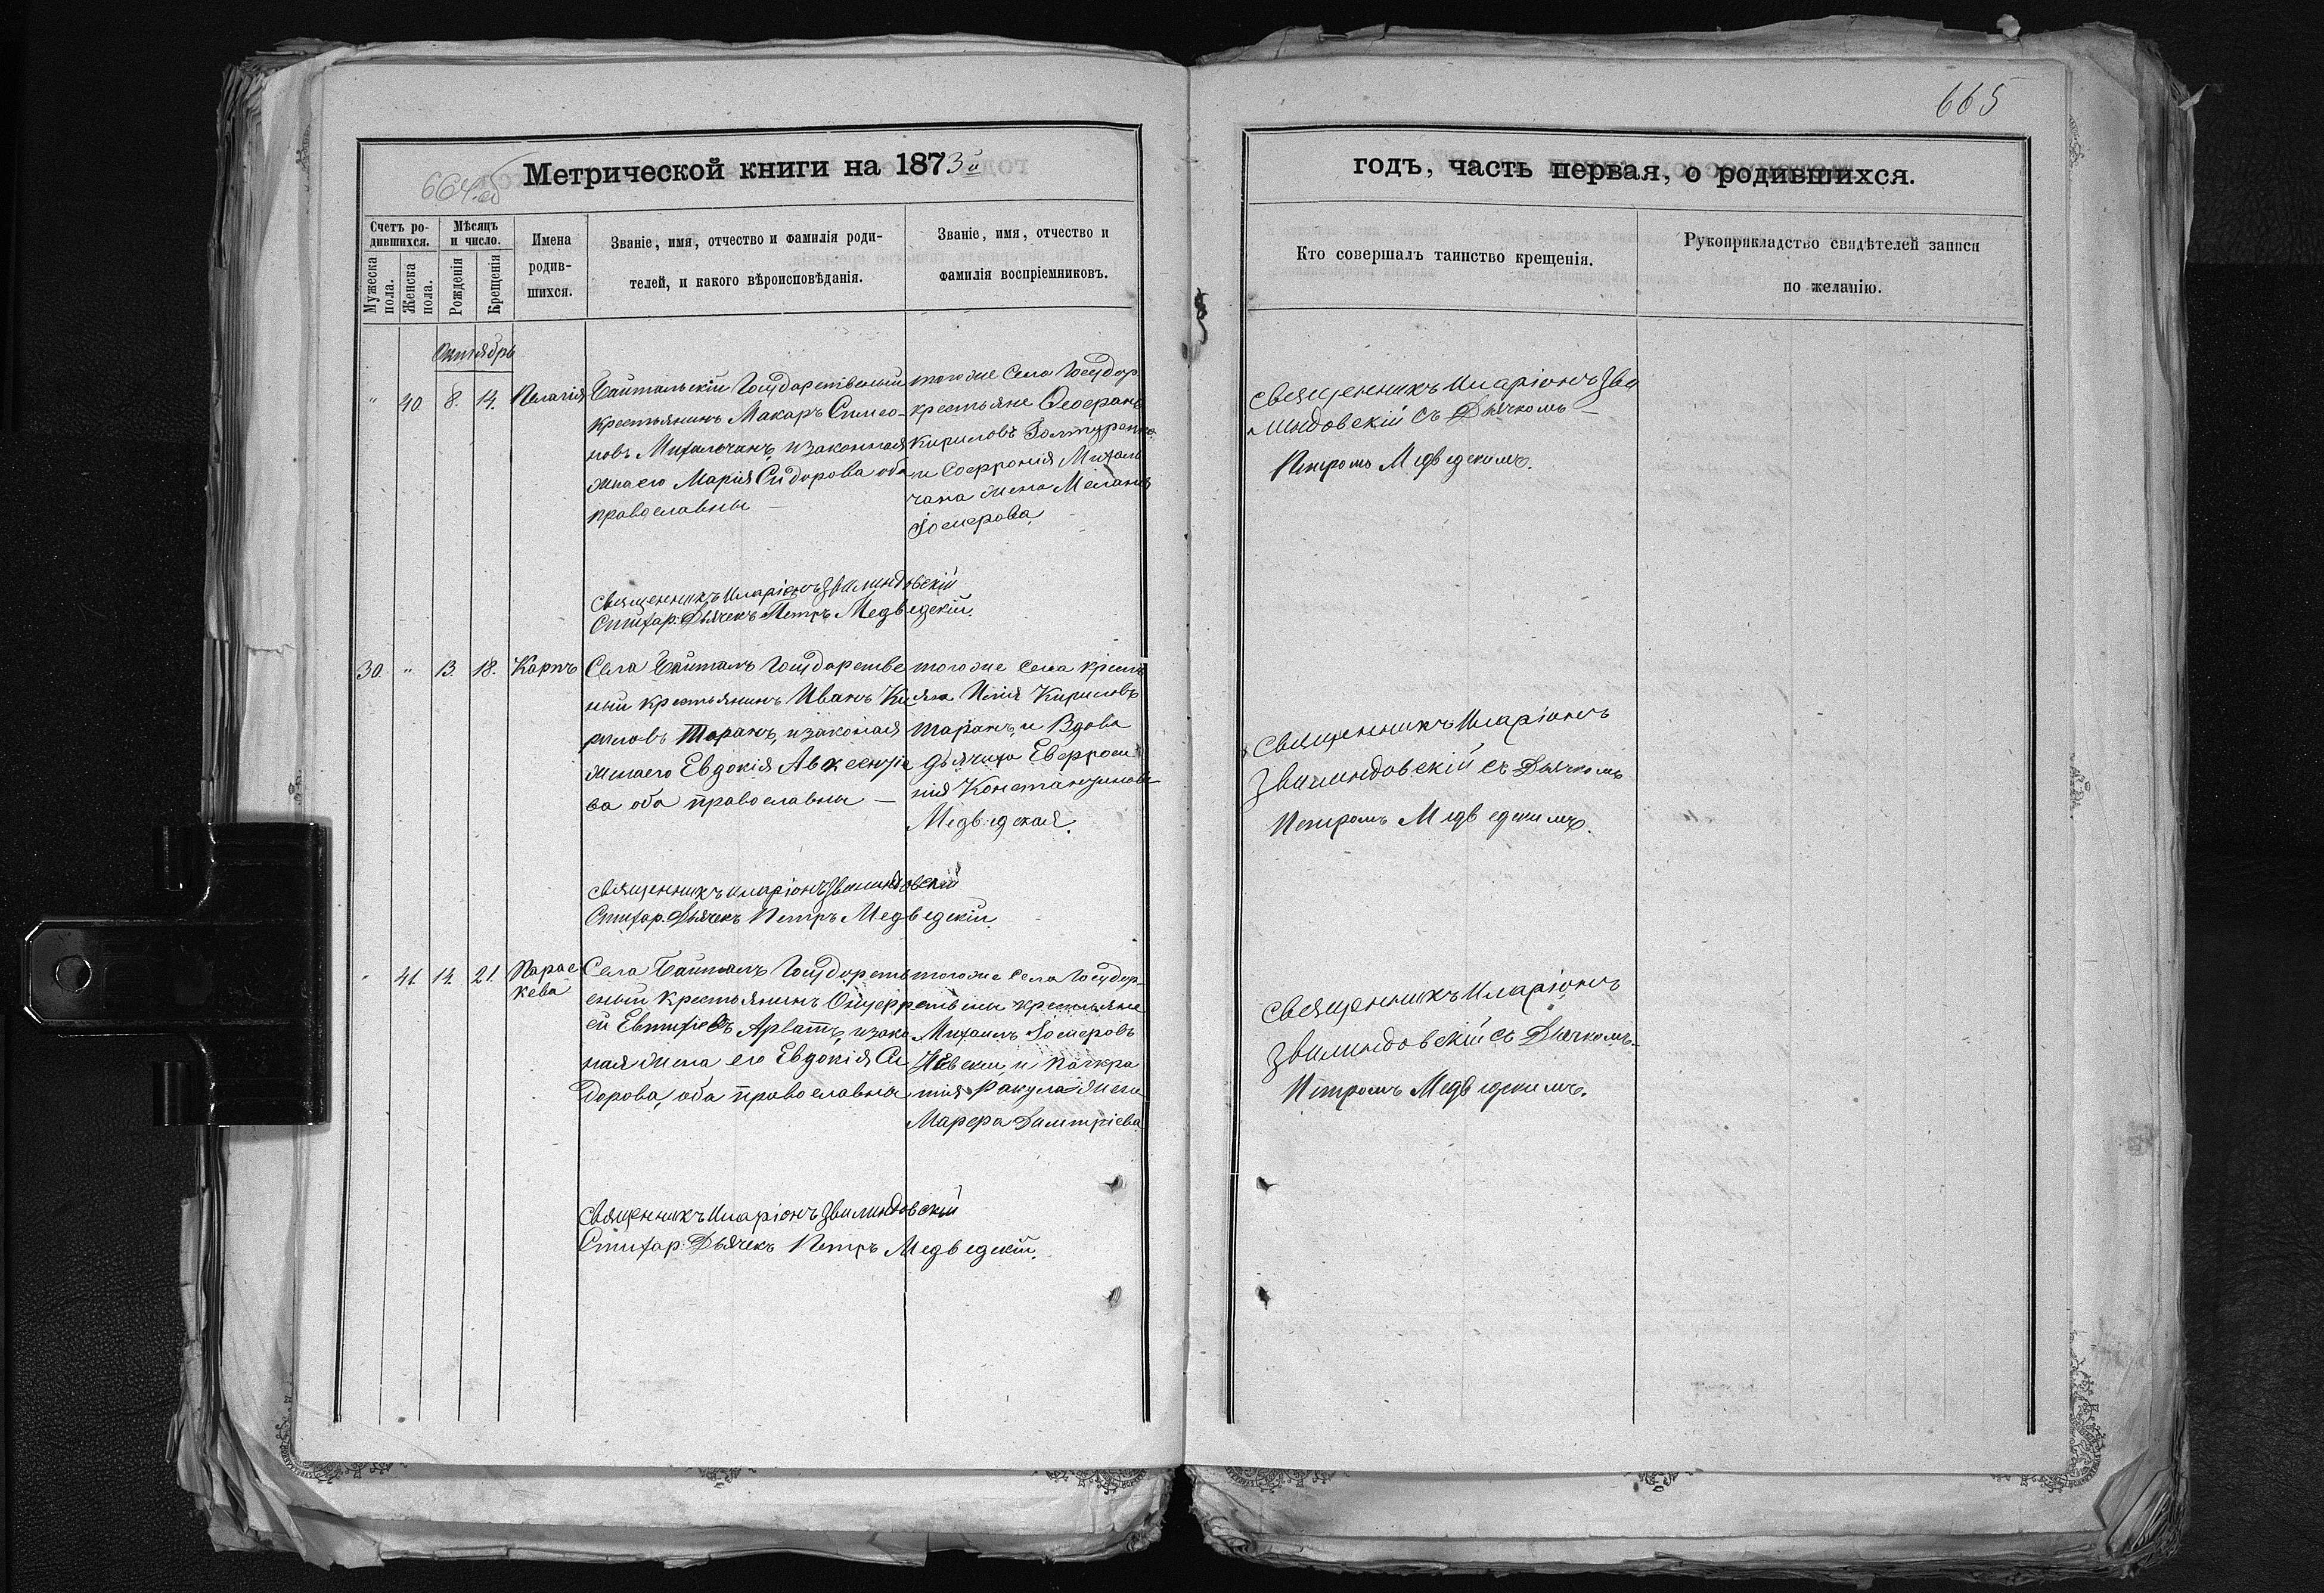 665
664 об
Метрической книги на 1873й
годъ, часть первая, о родившихся.
Счетъ ро-
дившихся.
Мужеска
пола.
Женска
пола.
Мѣсяцъ
и число.
Рожденія
Крещенія
Имена
родив-
шихся.
Званіе, имя, отчество и фамилія роди-
телей, и какого вѣроисповѣданія.
Званіе, имя, отчество и
фамилія воспріемниковъ.
Кто совершалъ таинство крещенія.
Рукоприкладство свидѣтелей записи
по желанію.
Октябрь
" 40. 8. 14. Пелагія
Байтальскій Государственый
крестьянинъ Макаръ Симео-
новъ Михальчанъ, и законная
жна его Марія Сидорова оба
православны —
тогоже села Государ
крестьяне Феофанъ
Кириловъ
и Софронія Михаль
чана жена Меланія
Іосифова
Священникъ Иларіонъ Зви
линдовскій съ Дьячкомъ —
Петромъ Медведскимъ.
Священникъ Иларіонъ Звилиндовскій
Стихар: Дьячекъ Петръ Медведскій.
30. " 13. 18. Карпъ
Села Байталъ Государстве
ный крестьянинъ Иванъ Ки
риловъ Таранъ, и законая
жена его Евдокія Авксентіе
ва оба православны —
тогоже села крестья
яне Илія Кириловъ
Таранъ, и Вдова
дьячиха Евфроси
нія Константинова
Медведская.
Священникъ Иларіонъ
Звилиндовскій съ Дьячкомъ
Петромъ Медведскимъ.
Священникъ Иларіонъ Звилиндовскій
Стихар: Дьячекъ Петръ Медведскій.
" 41. 14. 21. Парас
кева
Села Байталъ Государств
еный крестьянинъ Онуфр
ей Евтихіевъ Арватъ, и зако
ная жена его Евдокія Си
дорова, оба православны
тогоже села Государ-
ствены крестьяне
Михаилъ Іосифовъ
и Панкра
тія Ракула жена
Марфа Димтріева
Священникъ Иларіонъ
Звилиндовскій съ Дьячкомъ-
Петромъ Медведскимъ.
Священникъ Иларіонъ Звилиндовскій
Стихар: Дьячекъ Петръ Медведскій.